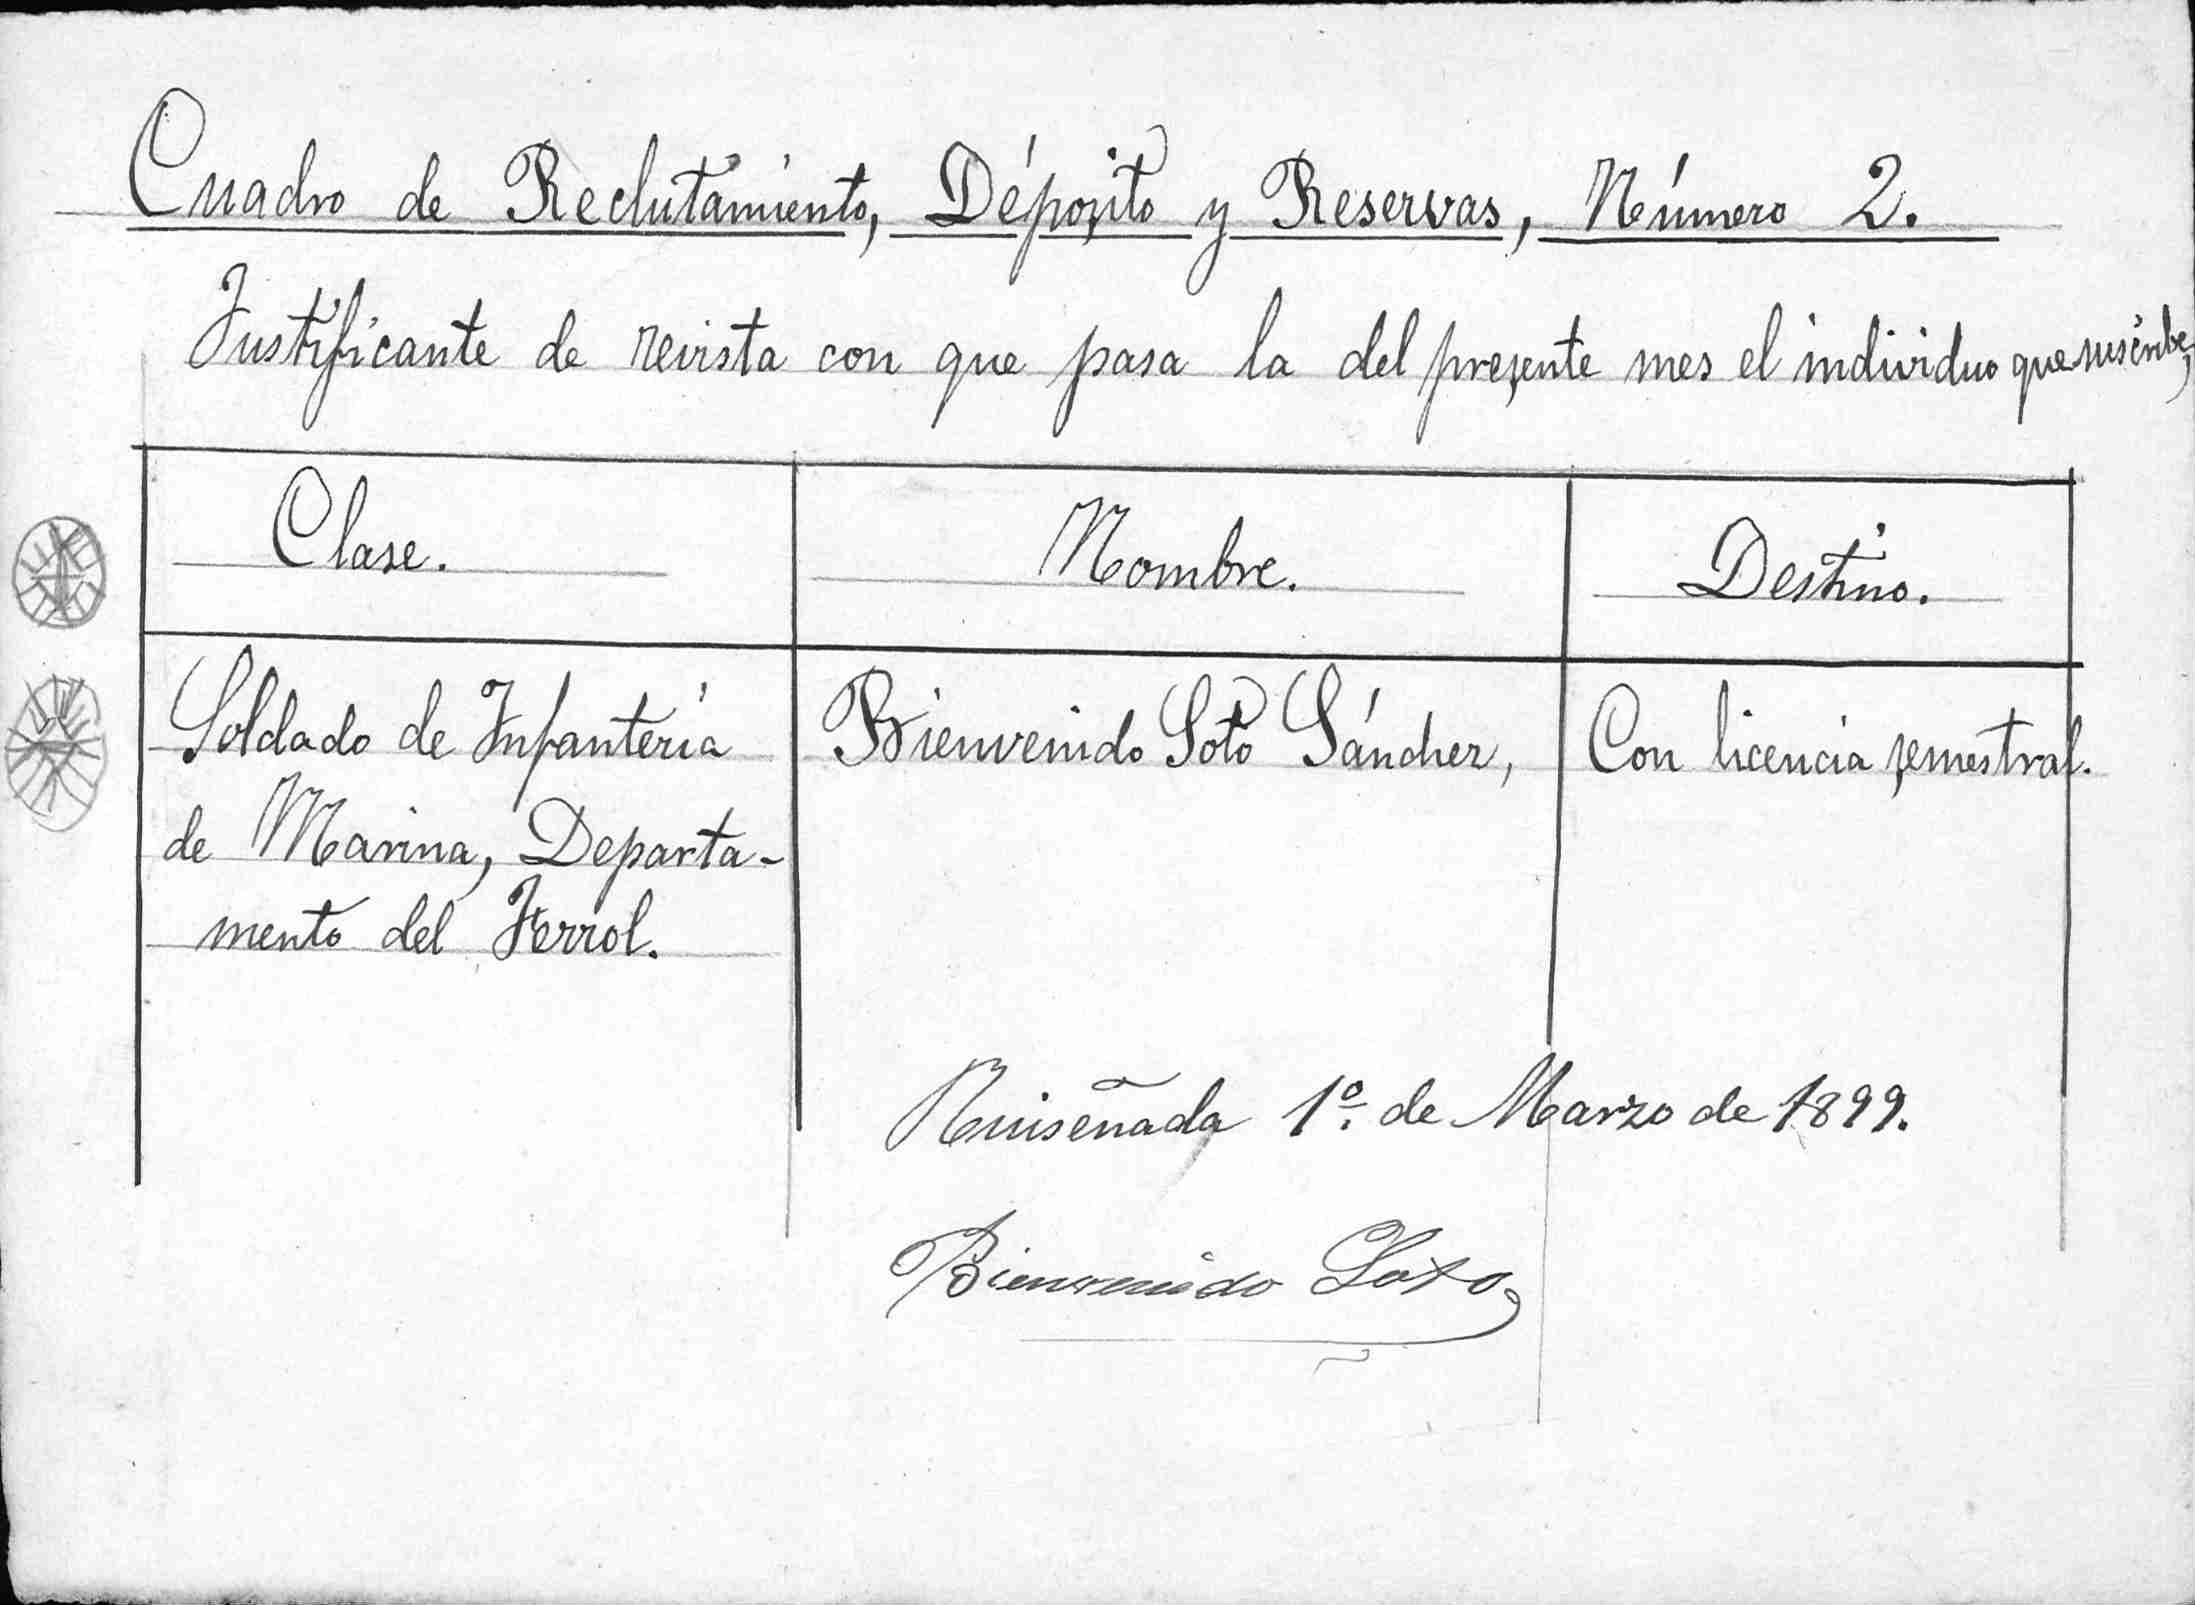 Cuadro de Reclutamiento, Déposito y Reservas, Número 2.
Justificante de revista con que pasa la del presente mes el individuo que suscribe,
Clase.
Nombre.
Destino.
Soldado de Infantería
de Marina, Departa-
mento del Ferrol.
Bienvenido Soto Sánchez,
Con licencia semestral.
Ruiseñada 1º. de Marzo de 1899.
Bienvenido Soto